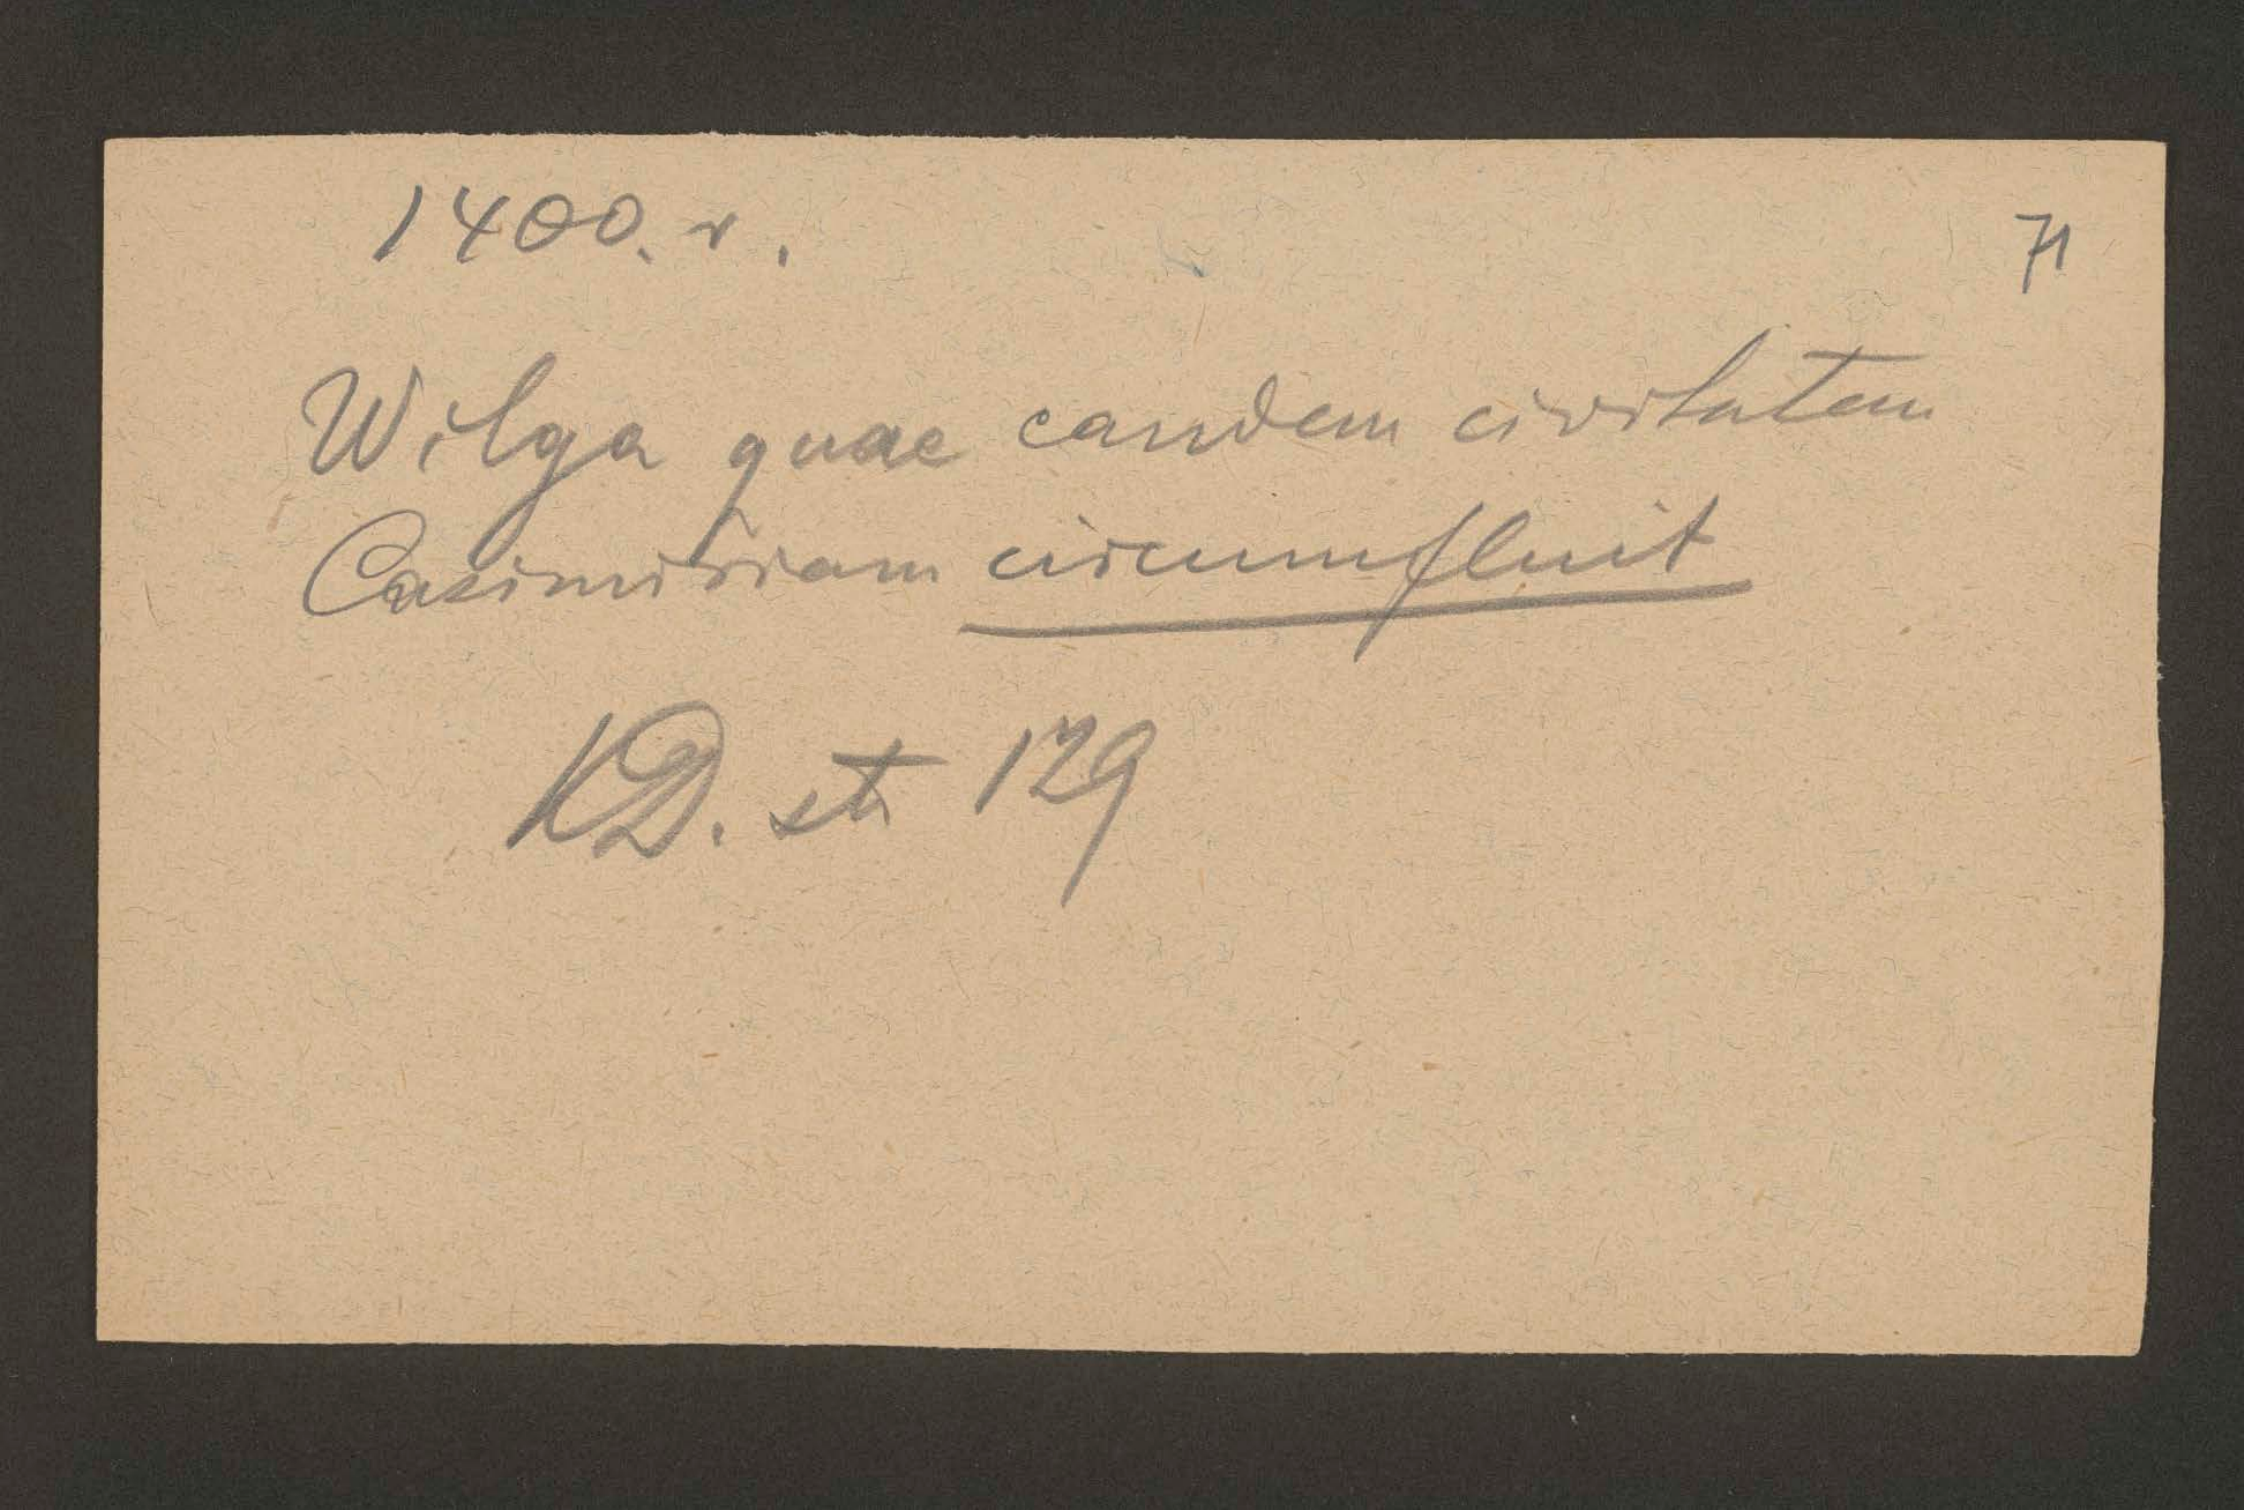 1400. r.
71
Wilga quae eandem civitatem
Casimiriam circumfluit
KD. st 129